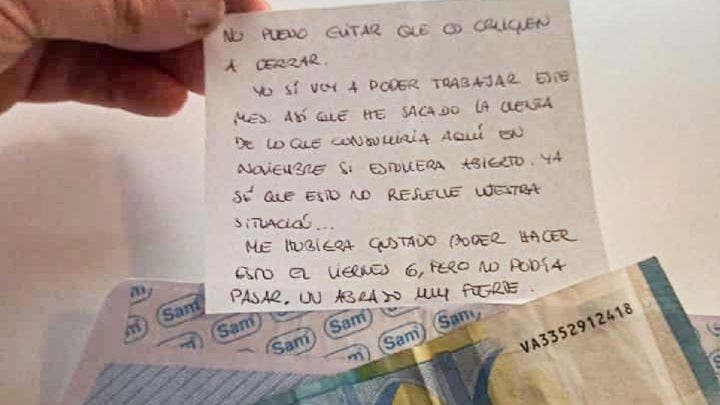 NO PUEDO EVITAR QUE OS OBLIGUEN
A CERRAR.
YO SÍ VOY A PODER TRABAJAR ESTE
MES. ASÍ QUE HE SACADO LA CUENTA
DE LO QUE CONSUMIRÍA AQUÍ EN
NOVIEMBRE SI ESTUVIERA ABIERTO. YA
SÉ QUE ESTO NO RESUELVE VUESTRA
SITUACIÓN...
ME HUBIERA GUSTADO PODER HACER
ESTO EL VIERNES 6, PERO NO PODÍA
PASAR. UN ABRAZO MUY FUERTE.
Sam
Sam
Sam
Sam
Sam
VA3352912418